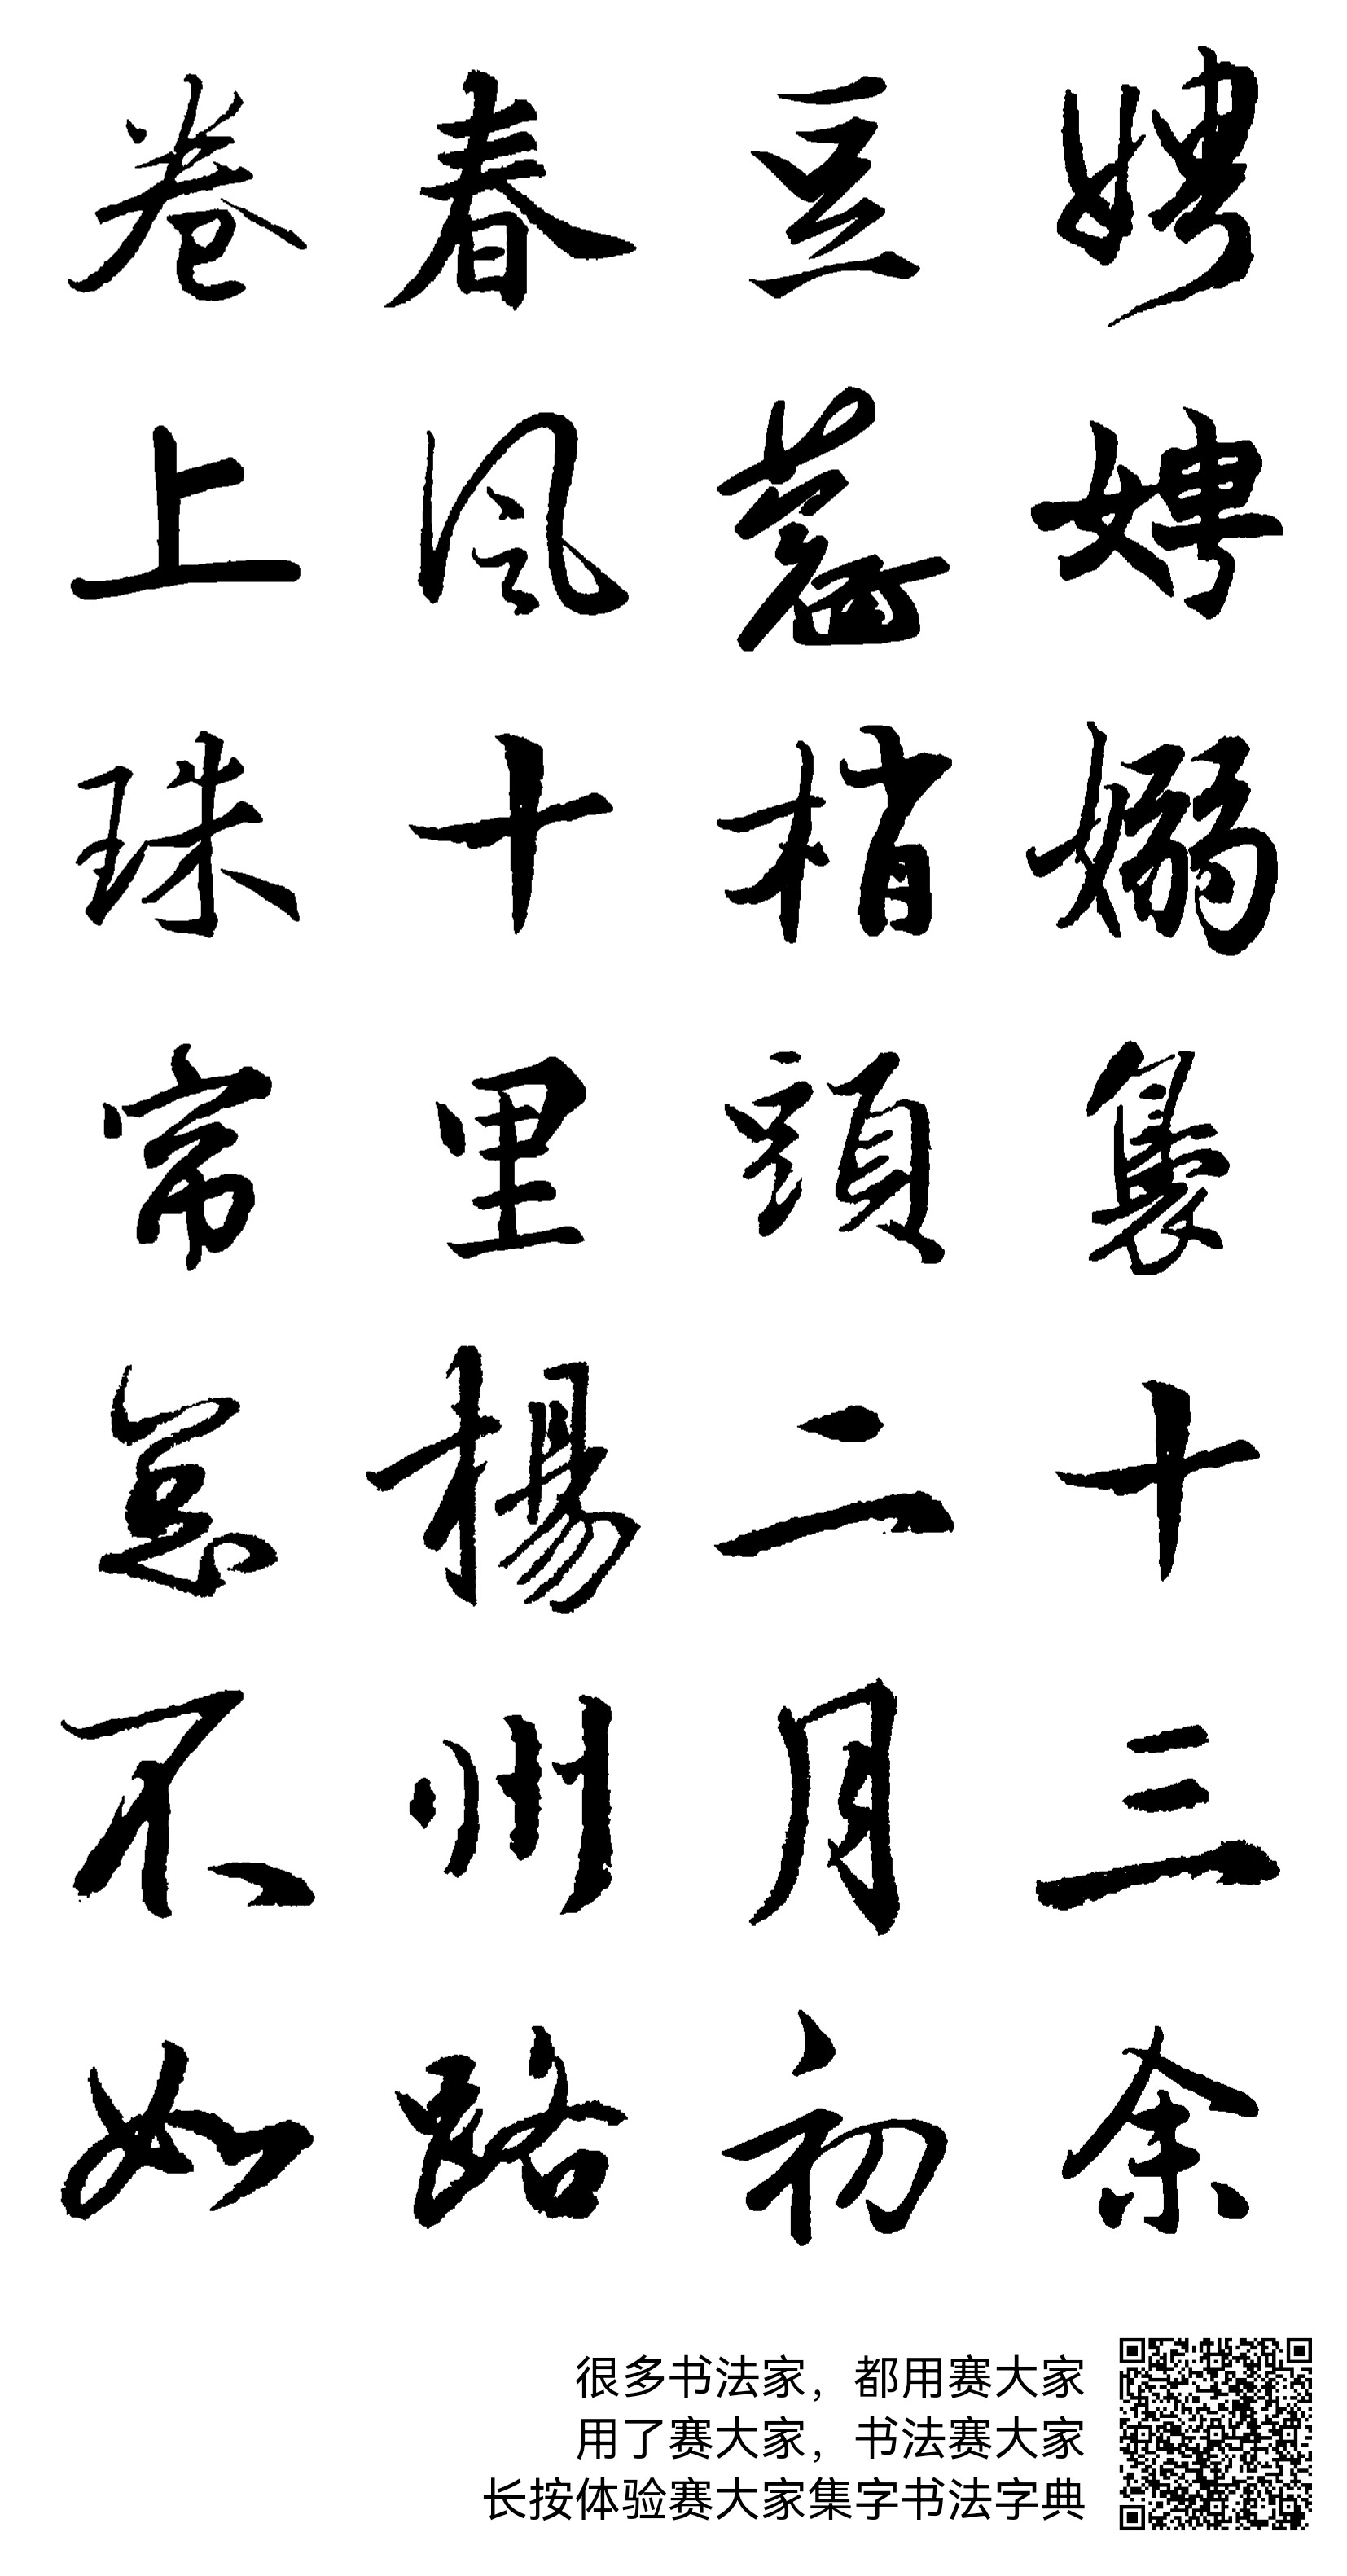 娉娉嫋裊十三余
豆蔻梢頭二月初
春風十里楊州路
卷上珠帘总不如
很多书法家，都用赛大家
用了赛大家，书法赛大家
长按体验赛大家集字书法字典